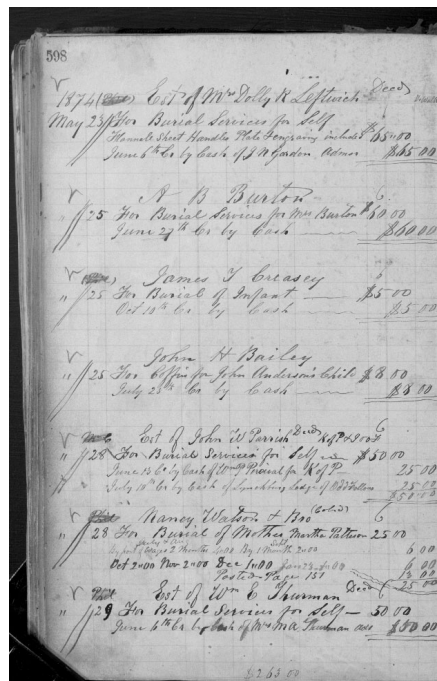 598
1874 Est of Mrs Dolly R Leftwich Decd
May 23 For Burial Services for Self
Sheet Handles Plate & engraving included $65.00
June 6th Cr by Cash of J W Garden Admor $65.00
A B Burton
" 25 For Burial Services for Mrs Burton $60.00
June 27th Cr by Cash $60.00
James T Creasey
" 25 For Burial of Infant $5.00
Oct 10th Cr by Cash $5.00
John H Bailey
" 25 For Coffin for John Anderson's Child $8.00
July 25th Cr by Cash $8.00
Est of John W Parrish Decd K of P & IOOF
" 28 For Burial Services for Self $50.00
June 13 Cr by Cash of for K of P 25 00
July 18th Cr by Cash of Lynchburg Lodge of Oddfellows 25 00
$50.00
Nancy Watson & Bro (Cold)
28 For Burial of Mother Martha Patterson 25 00
2 Months 4.00 By 1 Month 2.00 6 00
Oct 2.00 Nov 2.00 Dec 1.00 6 00
Posted Page 151 13 00
25 00
Est of Wm C Thurman Decd
" 29 For Burial Services for Self 50 00
June 6th Cr by Cash of Mrs M A Thurman $50 00
$263.00